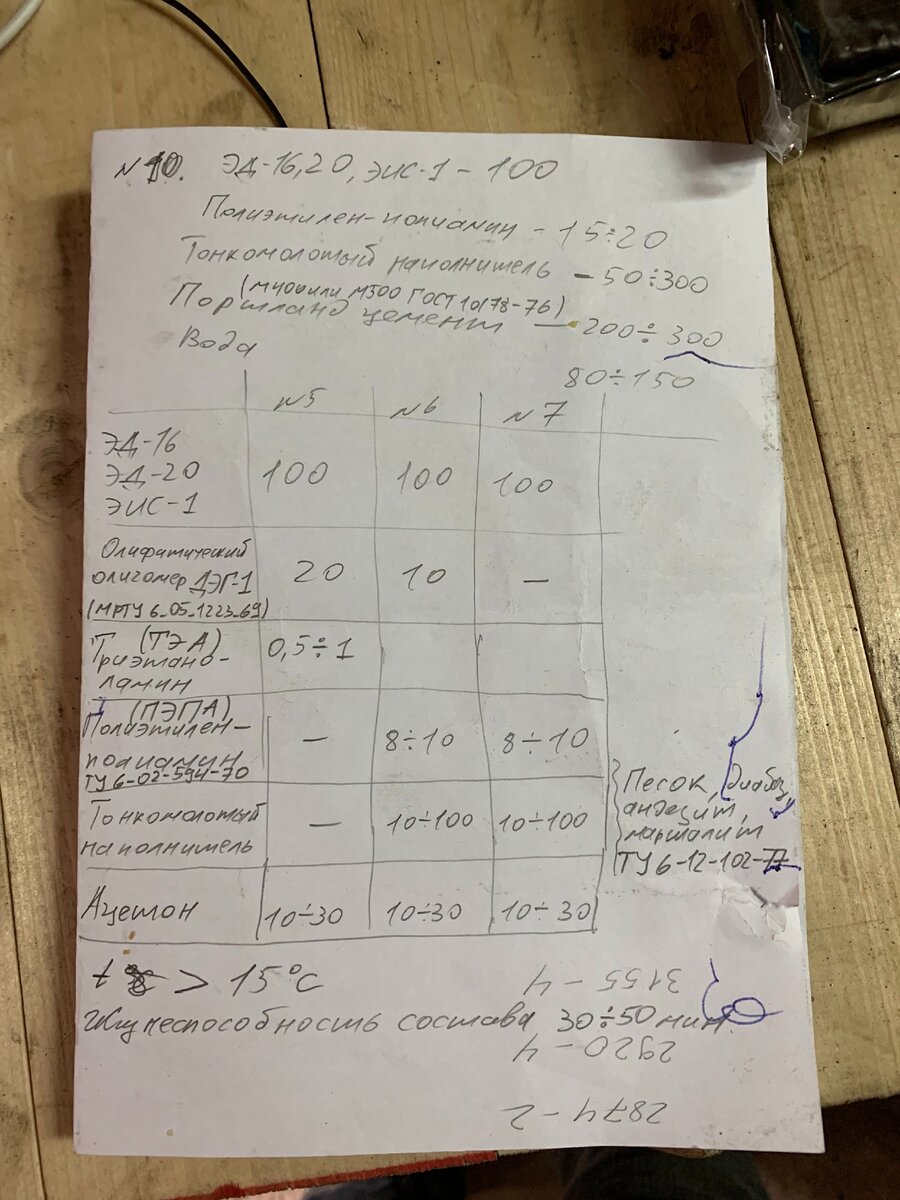 N10. ЭД-16,20, ЭИС-1 - 100
Полиэтилен-полиамин - 15÷20
Тонкомолотый наполнитель - 50÷300
(М400 или М500 ГОСТ 10178-76)
Портланд цемент - 200÷300
Вода 80÷150
N5 N6 N7
ЭД-16
ЭД-20 100 100 100
ЭИС-1
Олифатический
олигомер ДЭГ-1 20 10 -
(МРТУ 6_05_1223_69)
(ТЭА) 0,5÷1
Триэтано-
ламин
(ПЭПА)
Полиэтилен- - 8÷10 8÷10
полиамин
ТУ 6-02-594-70
Тонкомолотый - 10÷100 10÷100
наполнитель
Песок, диабаз,
андезит,
маршалит
ТУ 6-12-102-77
Ацетон 10÷30 10÷30 10÷30
t > 15°С
3155 - 4
Жизнеспособность состава 30÷50 мин.
2920 - 4
2874 - 2